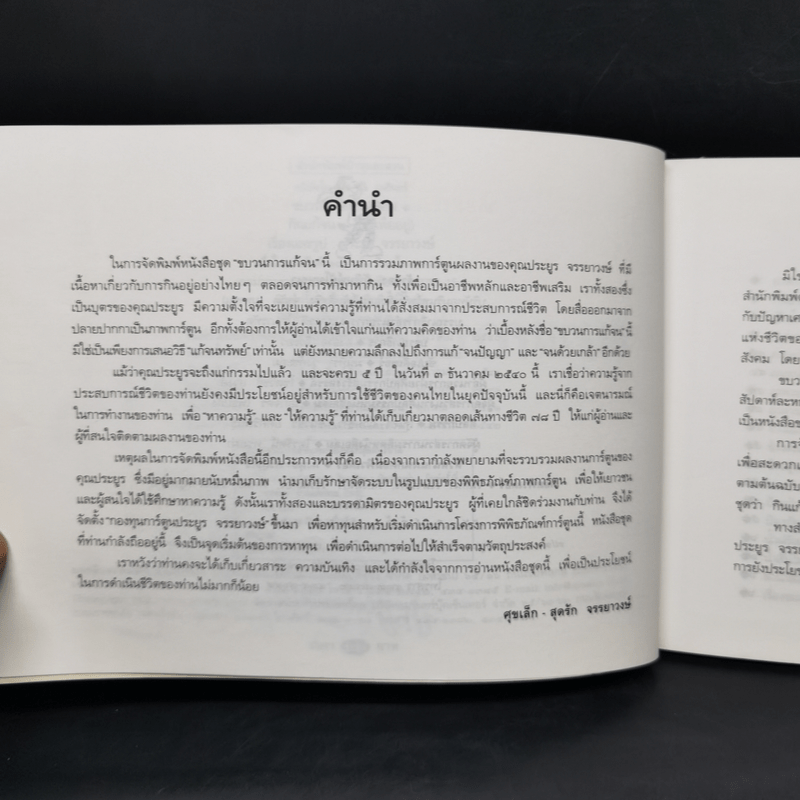 คำนำ
ในการจัดพิมพ์หนังสือชุด "ขบวนการแก้จน" นี้ เป็นการรวมภาพการ์ตูนผลงานของคุณประยูร จรรยาวงษ์ ที่มี
เนื้อหาเกี่ยวกับการกินอยู่อย่างไทยๆ ตลอดจนการทำมาหากิน ทั้งเพื่อเป็นอาชีพหลักและอาชีพเสริม เราทั้งสองซึ่ง
เป็นบุตรของคุณประยูร มีความตั้งใจที่จะเผยแพร่ความรู้ที่ท่านได้สั่งสมมาจากประสบการณ์ชีวิต โดยสื่อออกมาจาก
ปลายปากกาเป็นภาพการ์ตูน อีกทั้งต้องการให้ผู้อ่านได้เข้าใจแก่นแท้ความคิดของท่าน ว่าเบื้องหลังชื่อ "ขบวนการแก้จน" นี้
มิใช่เป็นเพียงการเสนอวิธี "แก้จนทรัพย์" เท่านั้น แต่ยังหมายความลึกลงไปถึงการแก้ "จนปัญญา" และ "จนด้วยเกล้า" อีกด้วย
แม้ว่าคุณประยูรจะถึงแก่กรรมไปแล้ว และจะครบ ๕ ปี ในวันที่ ๓ ธันวาคม ๒๕๔๐ นี้ เราเชื่อว่าความรู้จาก
ประสบการณ์ชีวิตของท่านยังคงมีประโยชน์อยู่สำหรับการใช้ชีวิตของคนไทยในยุคปัจจุบันนี้ และนี่ก็คือเจตนารมณ์
ในการทำงานของท่าน เพื่อ "หาความรู้" และ "ให้ความรู้" ที่ท่านได้เก็บเกี่ยวมาตลอดเส้นทางชีวิต ๗๘ ปี ให้แก่ผู้อ่านและ
ผู้ที่สนใจติดตามผลงานของท่าน
เหตุผลในการจัดพิมพ์หนังสือนี้อีกประการหนึ่งก็คือ เนื่องจากเรากำลังพยายามที่จะรวบรวมผลงานการ์ตูนของ
คุณประยูร ซึ่งมีอยู่มากมายนับหมื่นภาพ นำมาเก็บรักษาจัดระบบในรูปแบบของพิพิธภัณฑ์ภาพการ์ตูน เพื่อให้เยาวชน
และผู้สนใจได้ใช้ศึกษาหาความรู้ ดังนั้นเราทั้งสองและบรรดามิตรของคุณประยูร ผู้ที่เคยใกล้ชิดร่วมงานกับท่าน จึงได้
จัดตั้ง "กองทุนการ์ตูนประยูร จรรยาวงษ์" ขึ้นมา เพื่อหาทุนสำหรับเริ่มดำเนินการโครงการพิพิธภัณฑ์การ์ตูนนี้ หนังสือชุด
ที่ท่านกำลังถืออยู่นี้ จึงเป็นจุดเริ่มต้นของการหาทุน เพื่อดำเนินการต่อไปให้สำเร็จตามวัตถุประสงค์
เราหวังว่าท่านคงจะได้เก็บเกี่ยวสาระ ความบันเทิง และได้กำลังใจจากการอ่านหนังสือชุดนี้ เพื่อเป็นประโยชน์
ในการดำเนินชีวิตของท่านไม่มากก็น้อย
ศุขเล็ก - สุดรัก จรรยาวงษ์
สำนักพิมพ์
กับปัญหาเศ
แห่งชีวิตของ
สังคม โดย
ขบว
สัปดาห์ละห
เป็นหนังสือช
การจ
เพื่อสะดวก
ตามต้นฉบับ
ชุดว่า กินแก้
ทางสำ
ประยูร จรร
การยังประโย